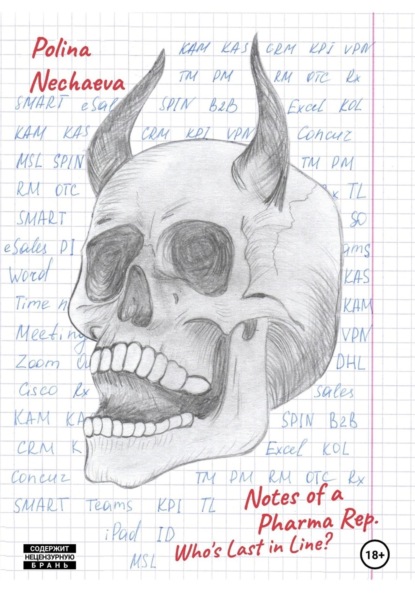 Polina
Nechaeva
KAM KAS CRM KPI VPN
TM PM RM OTC Rx
SMART eSal SPIN B2B Excel KOL
KAM KAS CRM KPI VPN Concur
MSL SPIN TM PM
RM OTC Rx TL
SMART SO
eSales PI ams
Word KAS
Time KAM
Meeting VPN
Zoom DHL
Cisco Rx Sales
KAM KA SPIN B2B
CRM K Excel KOL
Concur TM PM RM OTC Rx
SMART Teams KPI TL
iPad ID
MSL
Notes of a
Pharma Rep.
Who's Last in Line?
СОДЕРЖИТ
НЕЦЕНЗУРНУЮ
БРАНЬ
18+